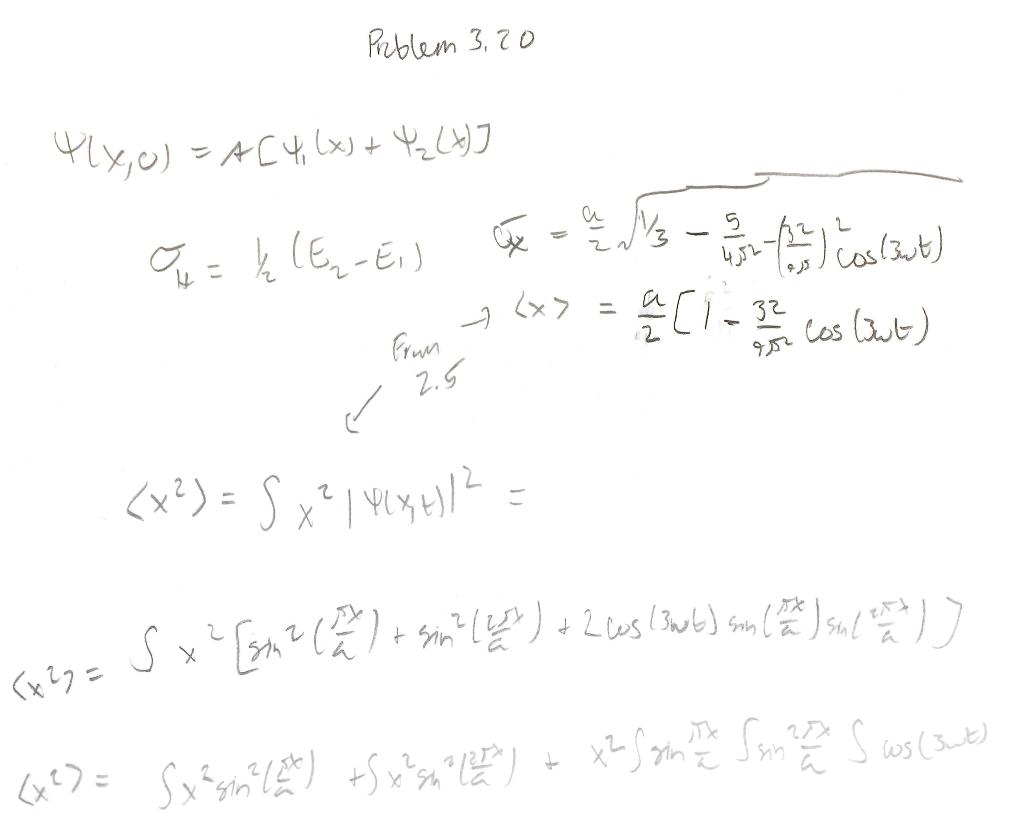 Problem 3.20
Ψ(x,0) = A[Ψ₁(x) + Ψ₂(x)]
σ_H = ½ (E₂-E₁)
σ_x = a/2 √(1/3 - 5/4π² - (32/9π)² cos(3ωt)
<x> = a/2 [1 - 32/9π² cos(3ωt)
From
2.5
<x²> = ∫ x² |Ψ(x,t)|² =
<x²> = ∫ x² [sin²(πx/a) + sin²(2πx/a) + 2 cos(3ωt) sin(πx/a) sin(2πx/a)]
<x²> = ∫x² sin²(πx/a) + ∫x² sin²(2πx/a) + x² ∫sin πx/a ∫sin 2πx/a ∫ cos(3ωt)